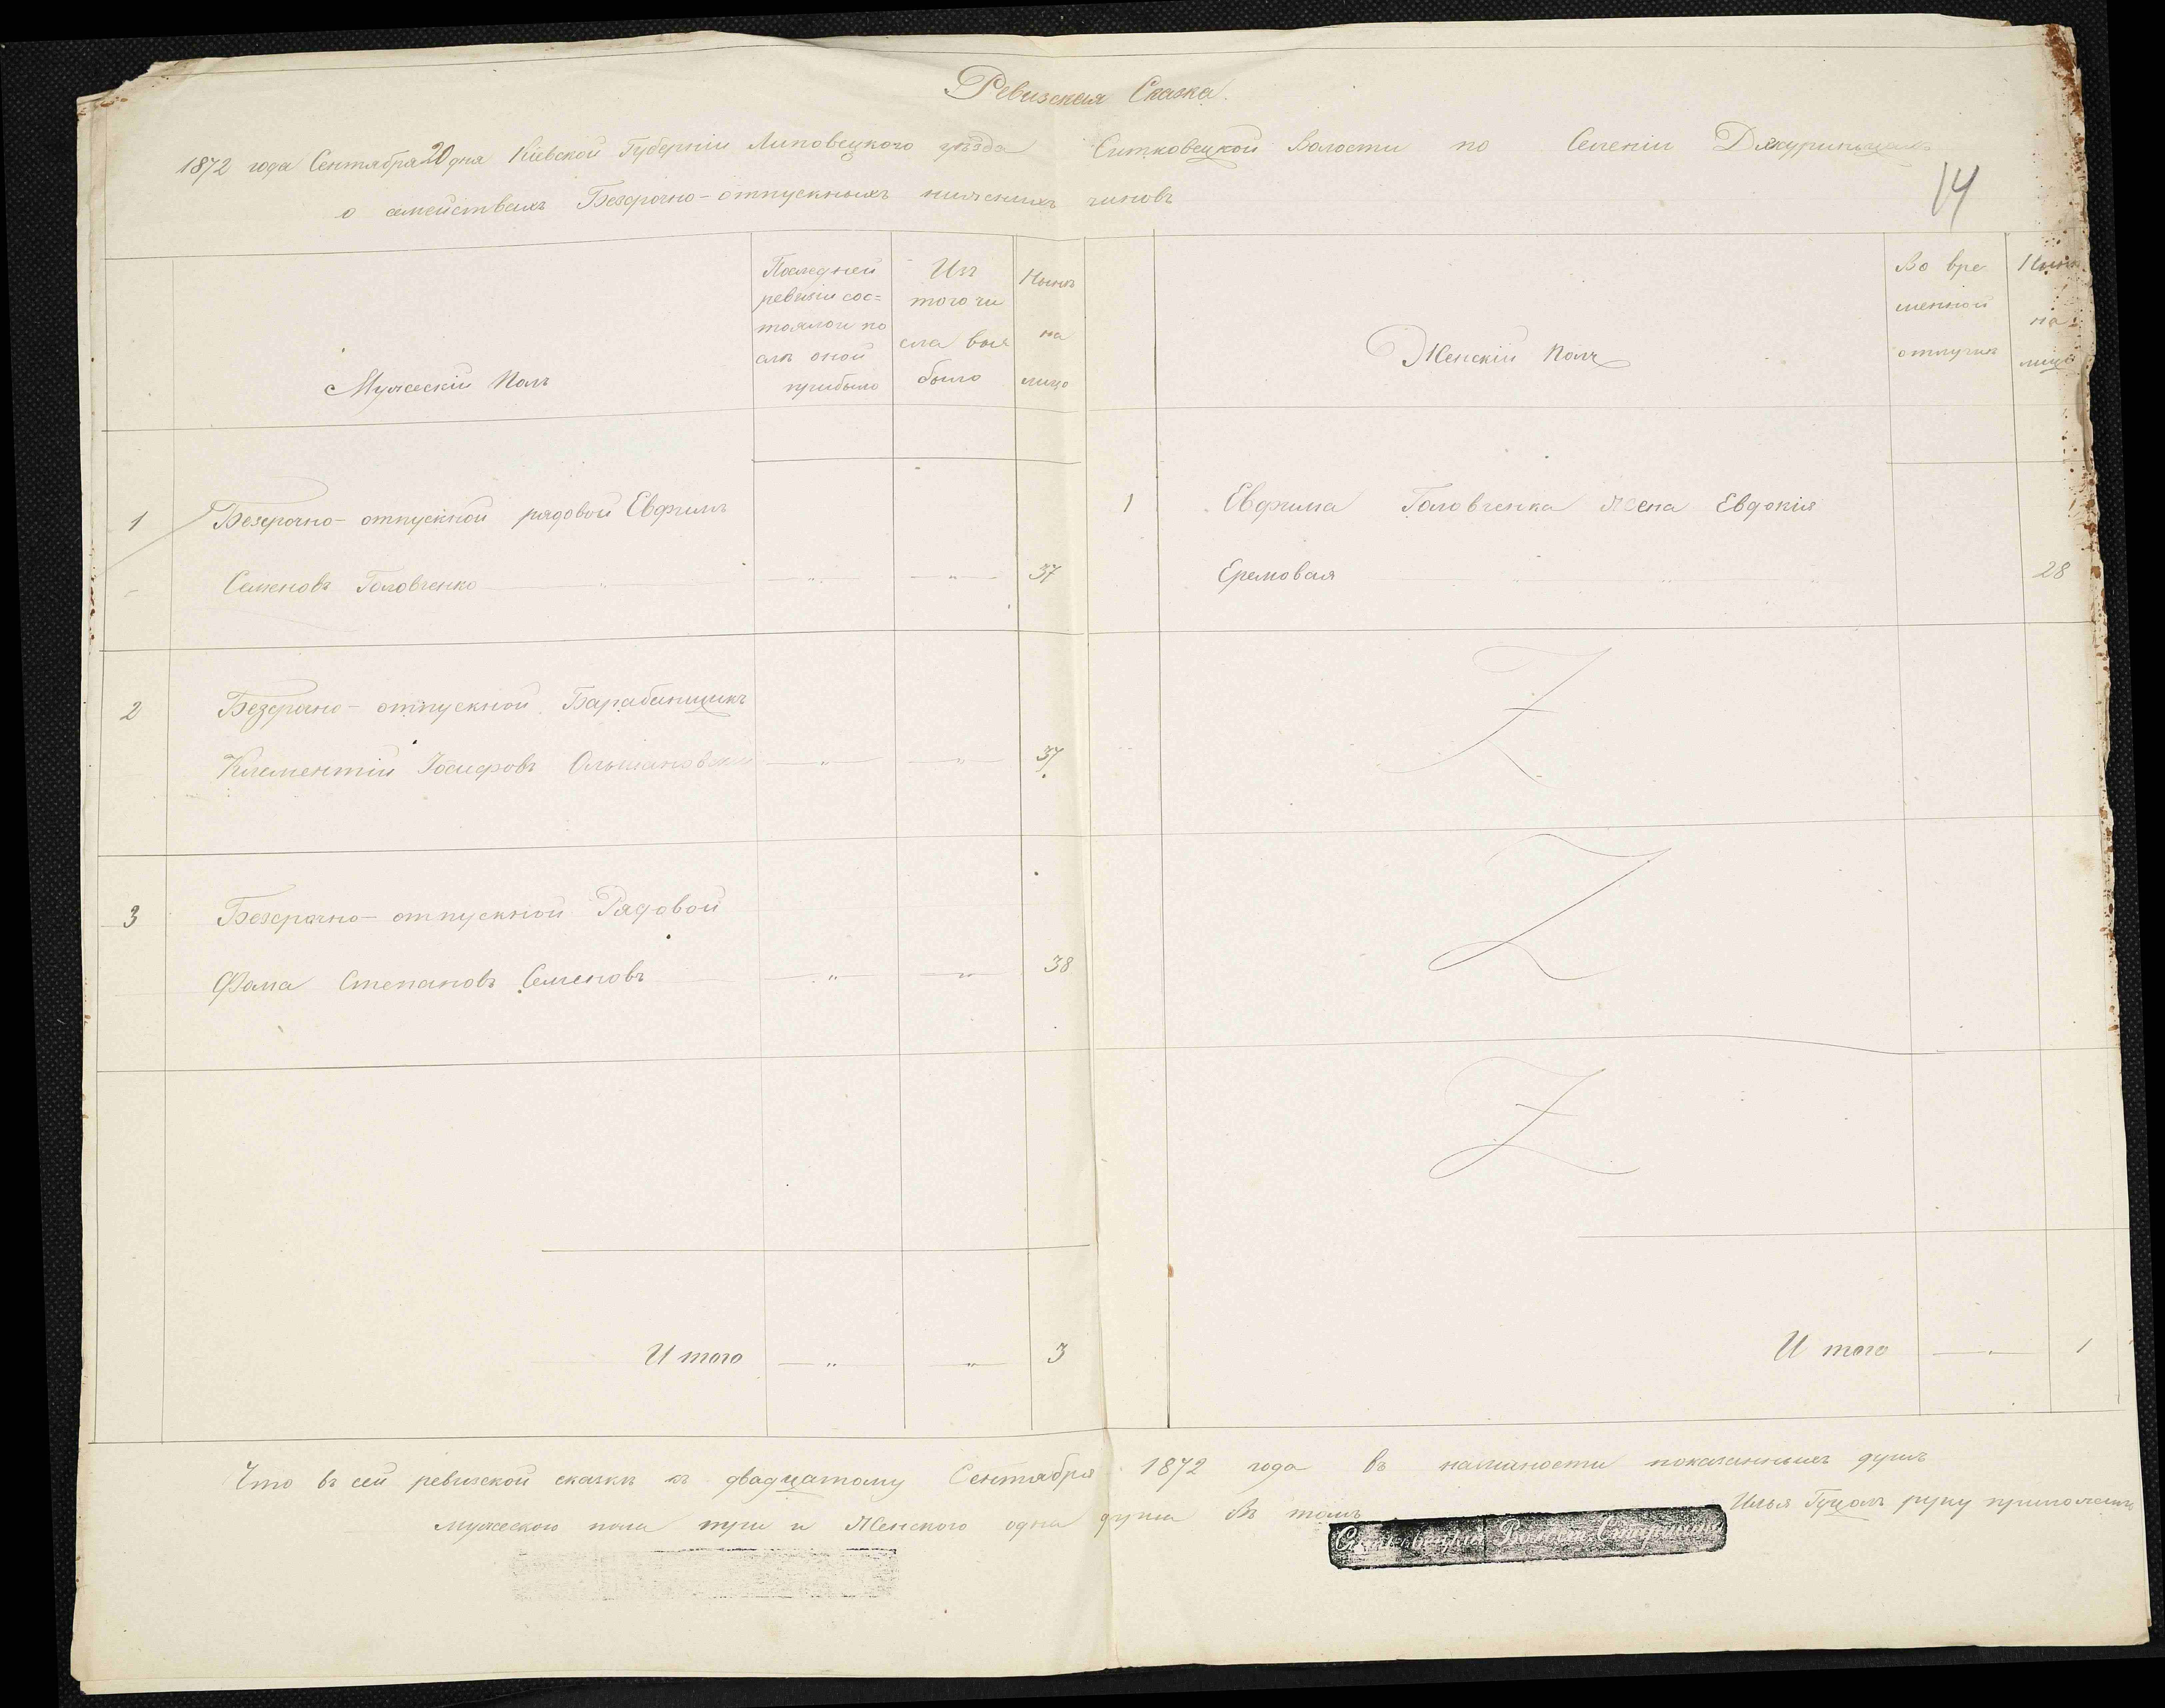 Ревизская Сказка.
1872 года Сентября 20 дня Кіевской Губерніи Липовецкого уѣзда Ситковецкой Волости по Селенію
о семействахъ Безсрочно-отпускныхъ нижнихъ чиновъ
14
Мужескій Полъ
Последней
ревизіи сос=
тоялои по
слѣ оной
прибыло
Изъ
того чи
сла вы
было
Нынѣ
на
лицо
Женскій Полъ
Во вре
менной
отлучкѣ
Нынѣ
на
лицо
1 Безсрочно-отпускной рядовой Евфимъ
Семеновъ Головченко " " 37
1 Евфима Головченка жена Евдокія
Еремовая 28
2 Безсрочно-отпускной Барабанщикъ
Климентій Іосифовъ Ольшановскій " " 37
3 Безсрочно-отпускной Рядовой
Фома Степановъ Семеновъ " " 38
Итого " " 3
Итого " 1
Что въ сей ревизской сказкѣ къ двадцатому Сентября 1872 года въ наличности показанныхъ душъ
мужеского пола три и Женского одна душа въ томъ
Ситковецкій Волост. Старшина
Илья Гуцалъ руку приложилъ